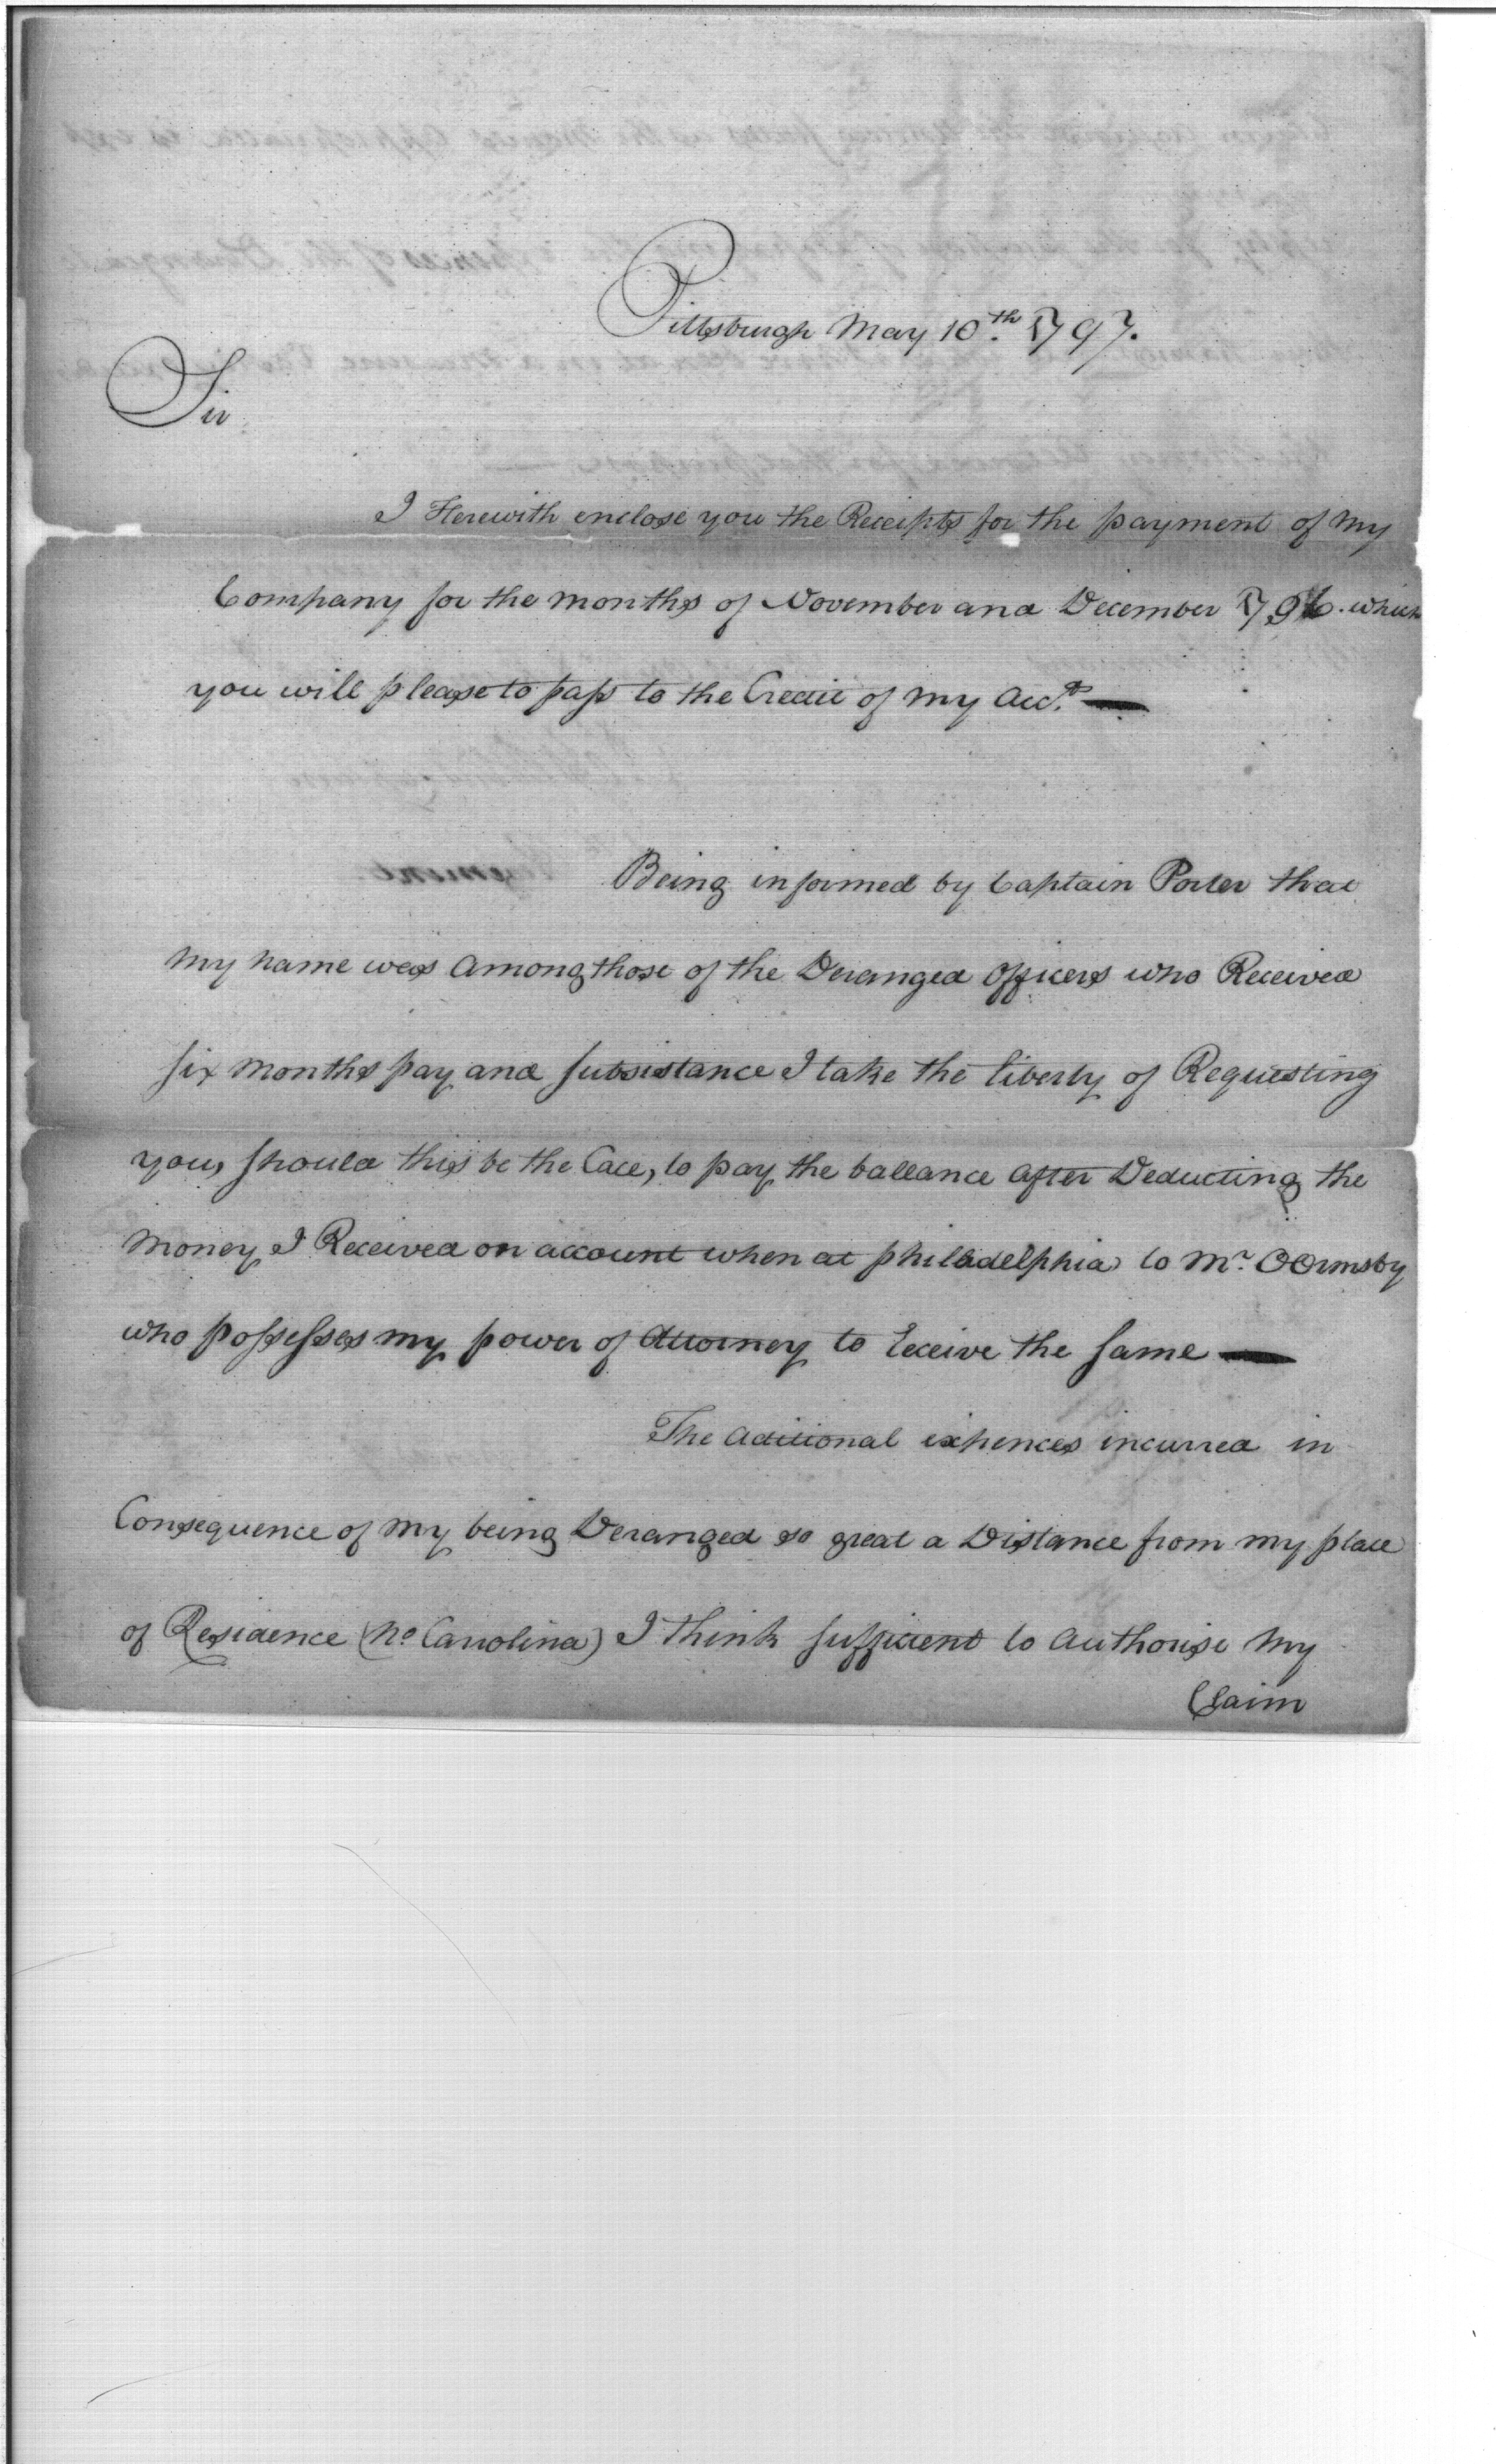 Pittsburgh May 10th. 1797.
Sir
I Herewith enclose you the Receipts for the payment of my
Company for the months of November and December 1796. which
you will please to pass to the Credit of my Acct.—
Being informed by Captain Porter that
my name was Among those of the Deranged Officers who Received
six months pay and subsistance I take the liberty of Requesting
you, should this be the Case, to pay the ballance After Deducting the
money I Received on account when at philadelphia to Mr. O Ormsby
who possesses my power of Attorney to Receive the same—
The aditional expences incurred in
Consequence of my being Deranged so great a Distance from my place
of Residence (No Carrolina) I think sufficient to Authorise my
Claim